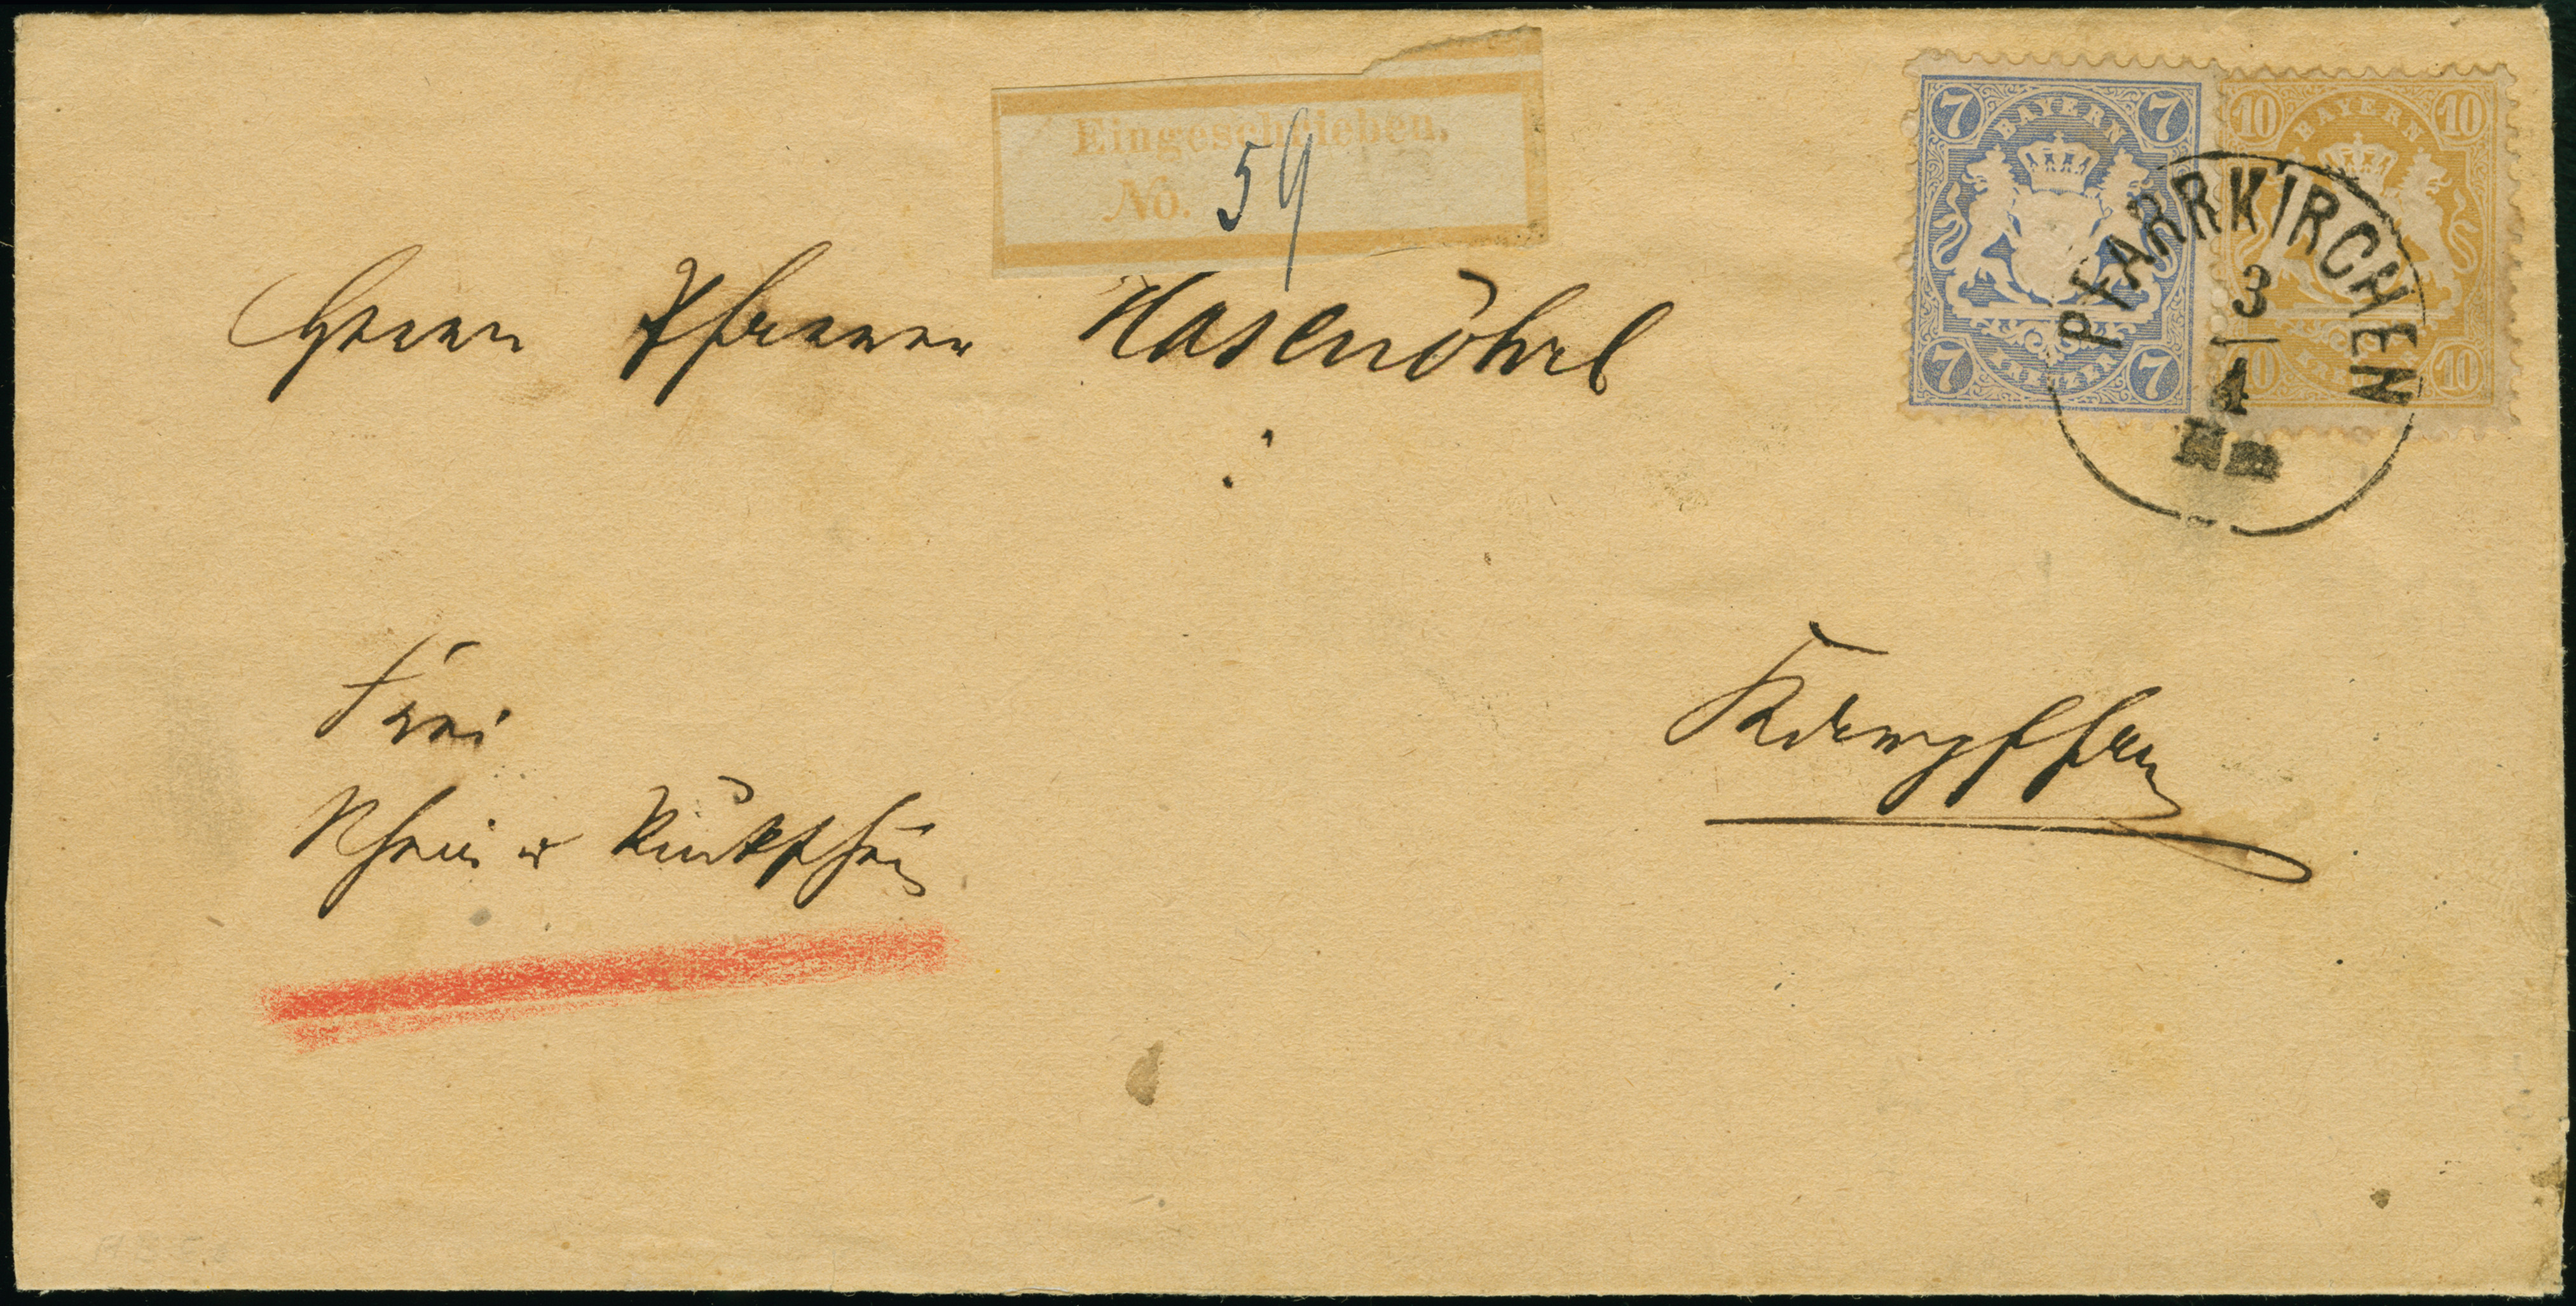 Eingeschrieben.
No. 59
7 7
BAYERN
KREUZER
7 7
10 10
BAYERN
10 10
PFARRKIRCHEN
3
4
Nm
Herrn Pfarrer Hasenöhrl
Frei
Schein u Rückschein